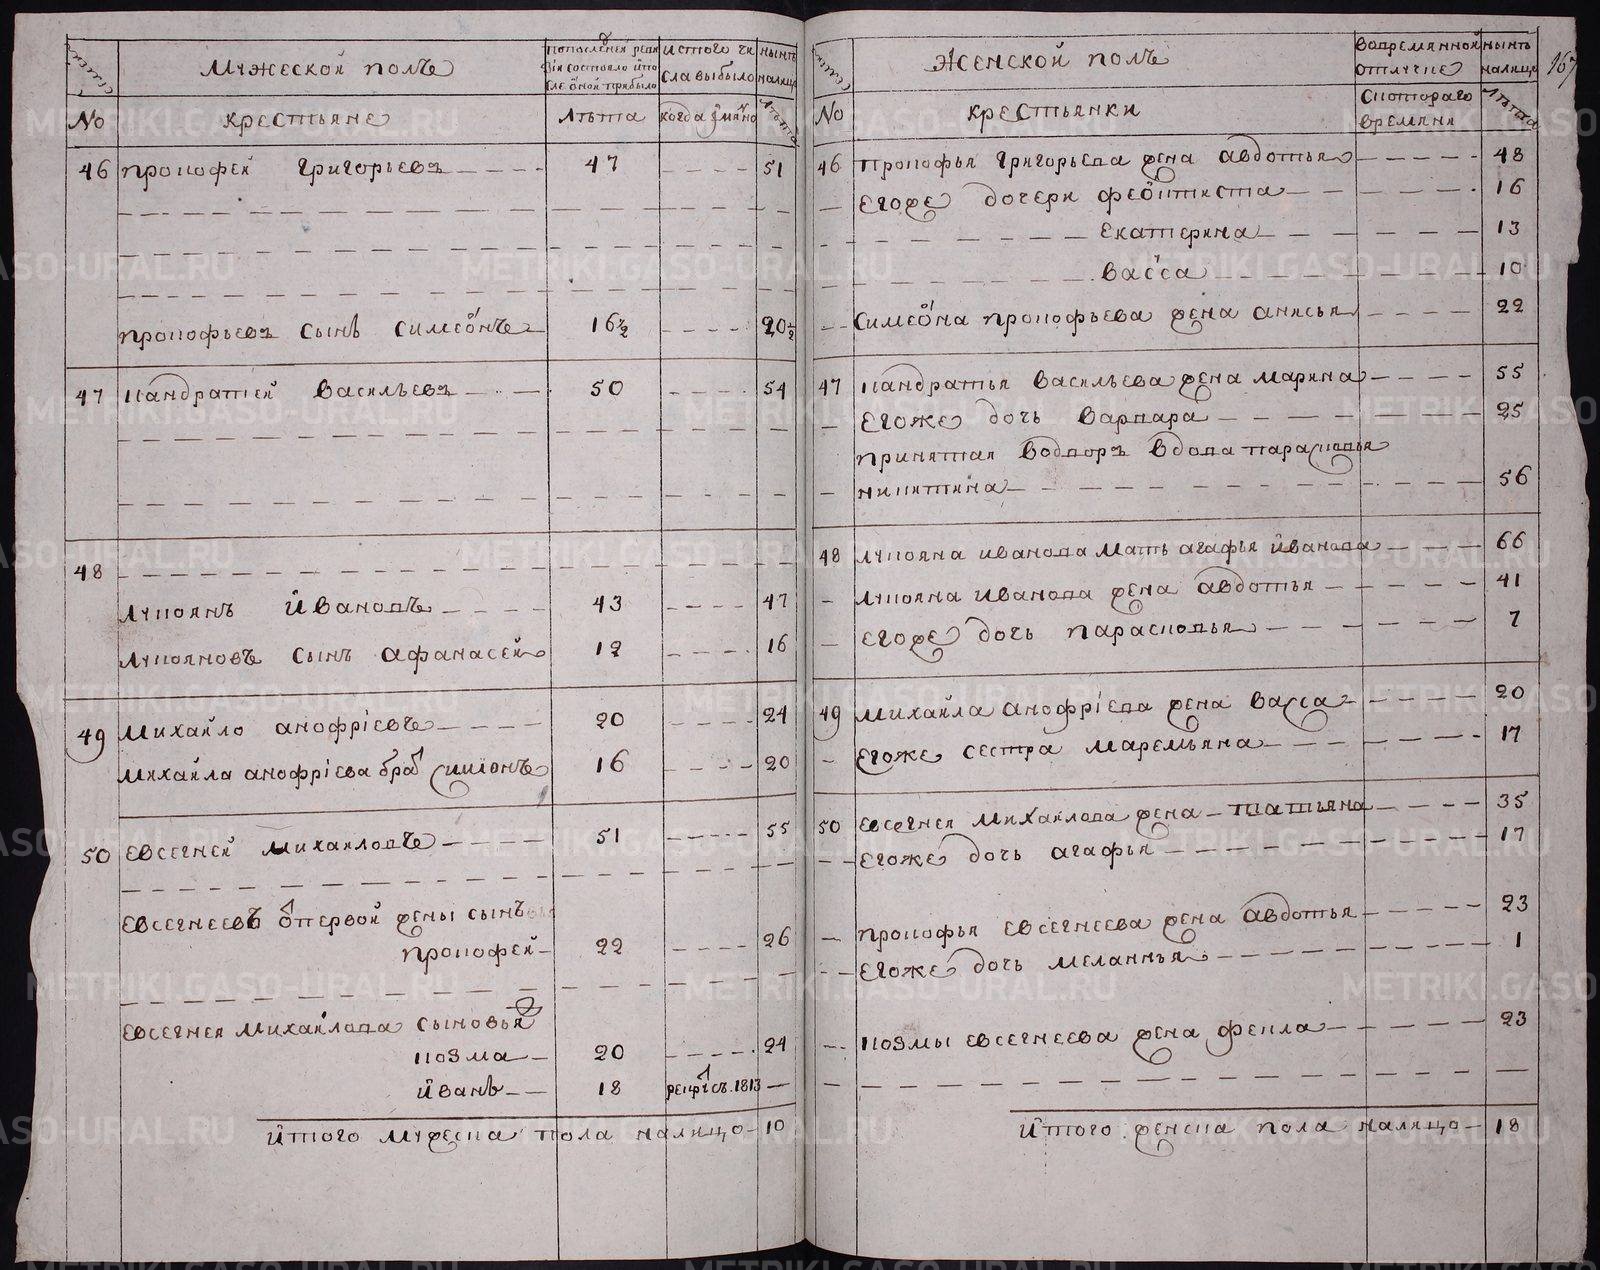 Мужеской полъ
по последней реви
зіи состояло и по
сле оной прибыло
и стого чи
сла выбыло
нынѣ
налицо
No
крестьяне
лѣта
когда имянно
лѣта
46 прокофей григорьевъ 47 51
прокофьевъ сынъ симеонъ 16½ 20½
47 кандратей васильевъ 50 54
48
лукоянъ ивановъ 43 47
лукояновъ сынъ афанасей 12 16
49 михайло анофріевъ 20 24
михайла анофріева братъ симионъ 16 20
50 евсегней михайловъ 51 55
евсегнеевъ от первой жены сынъ
прокофей 22 26
евсегнея михайлова сыновья
козма 20 24
иванъ 18 рекрутъ съ 1813
итого мужеска пола налицо 10
Женской полъ
во времянной
отлучке
нынѣ
налицо
167
No
крестьянки
с котораго
времяни
лѣта
46 прокофья григорьева жена авдотья 48
егоже дочери феоктиста 16
екатерина 13
васса 10
симеона прокофьева жена анисья 22
47 кандратья васильева жена марина 55
егоже дочь варвара 25
принятая во дворъ вдова парасковья
никитина 56
48 лукояна иванова мать агафья иванова 66
лукояна иванова жена авдотья 41
егоже дочь парасковья 7
49 михайла анофріева жена васса 20
егоже сестра маремьяна 17
50 евсегнея михайлова жена татьяна 35
егоже дочь агафья 17
прокофья евсегнеева жена авдотья 23
егоже дочь меланнья 1
козмы евсегнеева жена фекла 23
итого женска пола налицо 18
METRIKI.GASO-URAL.RU